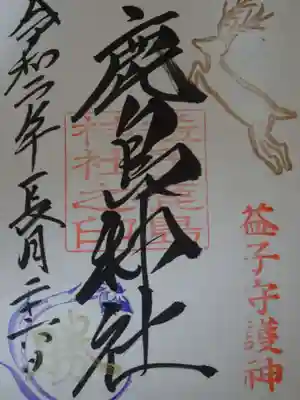 益子守護神
鹿島神社
鹿島
神社之印
令和二年長月二十六日